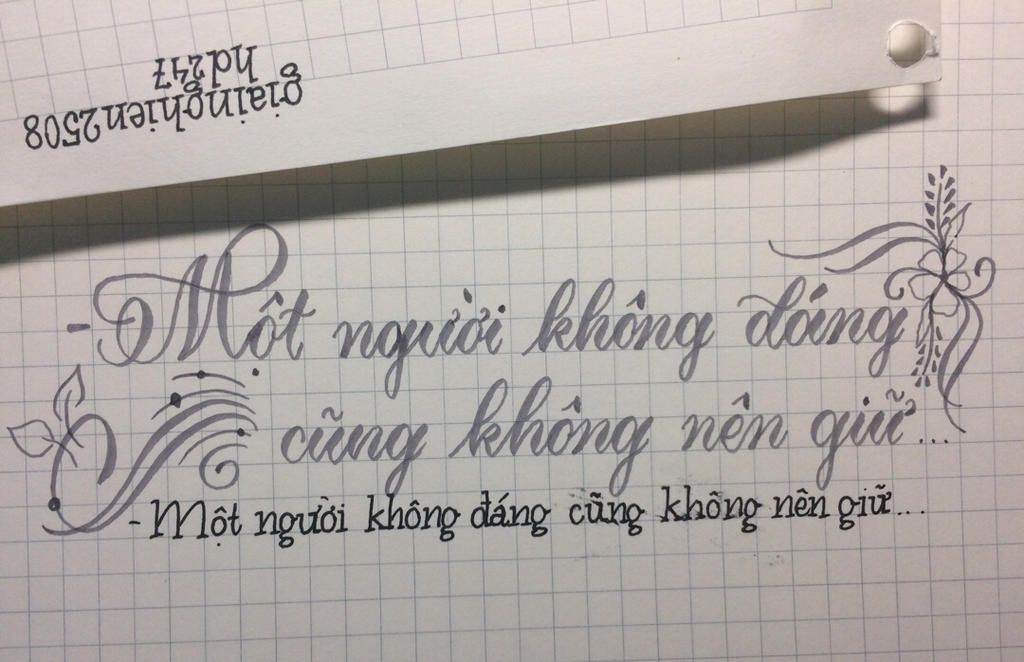 giainghien2508
hd247
- Một người không đáng
cũng không nên giữ...
- Một người không đáng cũng không nên giữ...